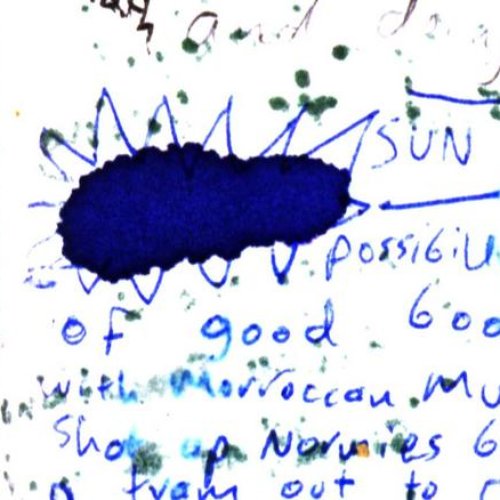 and
SUN
possibil
of good boo
with Morroccan Mu
Shot up Normies
tram out to